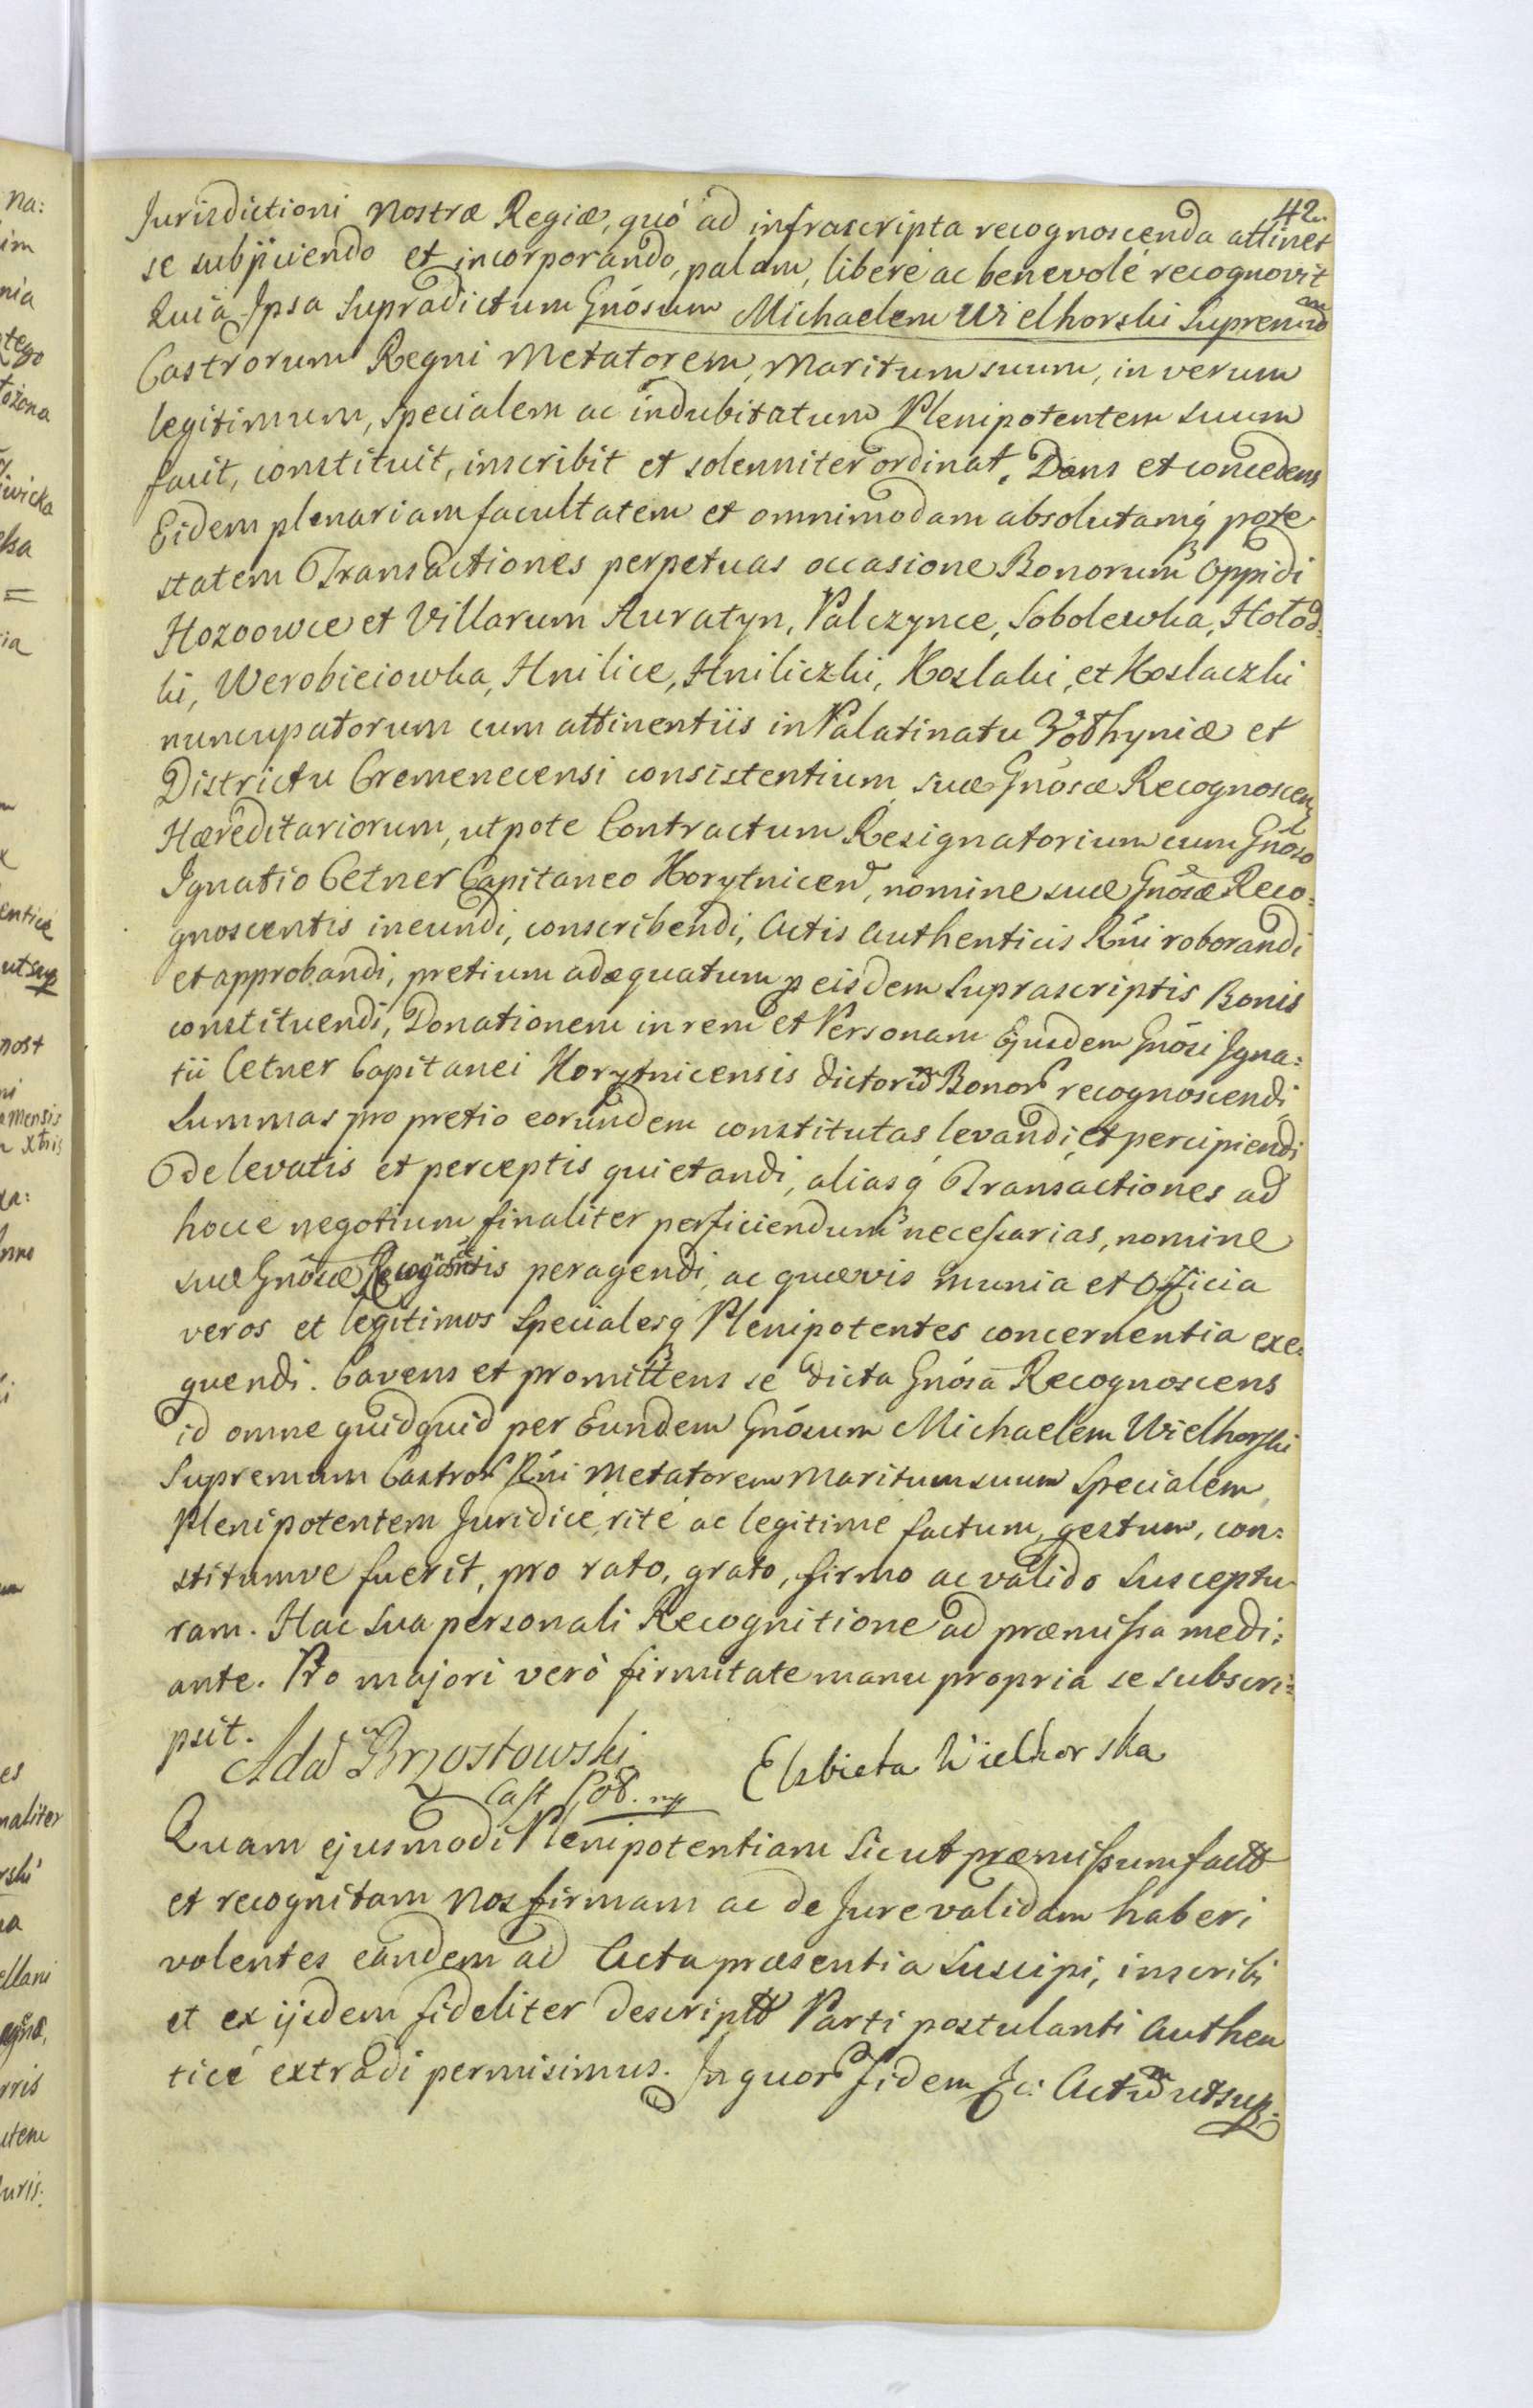 42.
Jurisdictioni Nostræ Regiæ, quó ad infrascripta recognoscenda attinet
se subjiciendo et incorporando, palam, liberé ac benevolé recognovit
Quia Ipsa Supradictum Gnósum Michaelem Wielhorski Supremum
Castrorum Regni Metatorem, Maritum suum, in verum
legitimum, Specialem ac indubitatum Plenipotentem suum
facit, constituit, inscribit et solenniter ordinat. Dans et concedens
Eidem plenariam facultatem et omnimodam absolutamq́ pote
statem Transactiones perpetuas occasione Bonorum Oppidi
Hozoowce et Villarum Auratyn, Palczynce, Sobolewka, Hołod:
ki, Werobieiowka, Hnilice, Hniliczki, Koslaki, et Koslaczki
nuncupatorum cum attinentiis in Palatinatu Volhyniæ et
Districtu Cremenecensi consistentium suæ Gnósæ Recognoscen
Hæreditariorum, utpote Contractum Resignatorium cum Gnóso
Ignatio Cetner Capitaneo Korytnicen, nomine suæ Gnósæ Reco:
gnoscentis ineundi, conscribendi, Actis Authenticis Rńi roborandi
et approbandi, pretium adæquatum p eisdem Suprascriptis Bonis
constituendi, Donationem in rem et Personam Ejusdem Gnósi Igna:
tii Cetner Capitanei Korytnicensis dictorum Bonor recognoscendi
Summas pro pretio eorundem constitutas levandi, et percipiendi
De levatis et perceptis quietandi, aliasq́ Transactiones ad
hocce negotium finaliter perficiendum necessarias, nomine
suæ Gnósæ Recognosctis peragendi, ac quævis munia et Officia
veros et legitimos Specialesq Plenipotentes concernentia exe:
quendi. Cavens et promittens se dicta Gnósa Recognoscens
id omne quidquid per Eundem Gnósum Michaelem Wielhorski
Supremum Castror Rńi Metatorem Maritum suum Specialem
Plenipotentem Juridicé, rité ac legitimé factum, gestum, con:
stitumve fuerit, pro rato, grato, firmo ac valido Susceptu
ram. Hac Sua personali Recognitione ad præmissa medi:
ante. Pro majori veró firmitate manu propria se subscri:
psit.
Adam Brzostowski
Cast Poł. mp
Elzbieta Wielhorska
Quam ejusmodi Plenipotentiam Sicut præmissum fact
et recognitam Nos firmam ac de Jure validam haberi
volentes eandem ad Acta præsentia Suscipi, inscribi
et ex ijsdem fideliter descript Parti postulanti Authen
ticé extradi permisimus. In quor fidem &c: Actum ut sup: